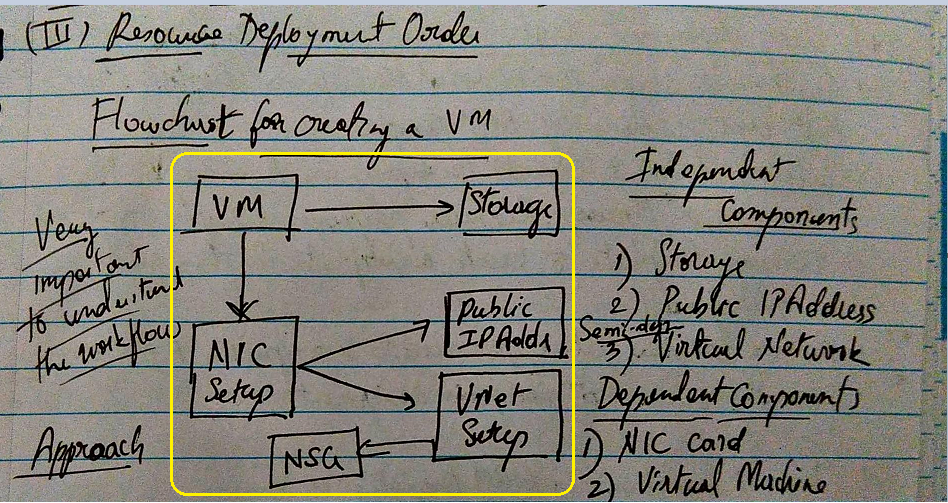 (III) Resource Deployment Order
Flowchart for creating a VM
Very
important
to understand
the workflow
Approach
VM
Storage
NIC
Setup
Public
IP Addr
VNet
Setup
NSG
Independent
Components
1) Storage
2) Public IP Address
Semi-dep
3) Virtual Network
Dependent Components
1) NIC card
2) Virtual Machine